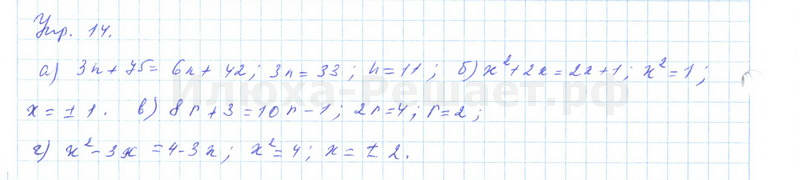 Упр. 14.
а) 3n + 75 = 6n + 42; 3n = 33; n = 11; б) x² + 2x = 2x + 1; x² = 1;
x = ± 1. в) 8r + 3 = 10r - 1; 2r = 4; r = 2;
г) x² - 3x = 4 - 3x; x² = 4; x = ± 2.
Илюха-Решает.рф